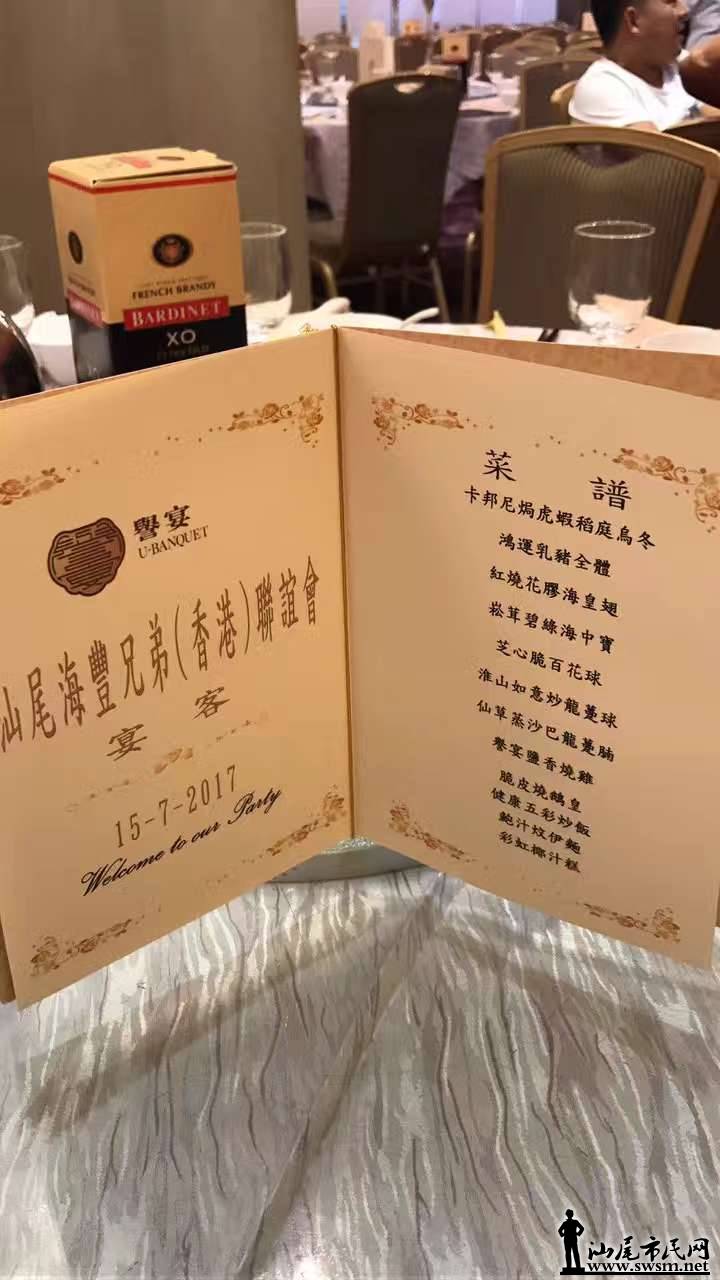 FRENCH BRANDY
BARDINET
XO
譽宴
U-BANQUET
汕尾海豐兄弟(香港)聯誼會
宴客
15-7-2017
Welcome to our Party
菜譜
卡邦尼焗虎蝦稻庭烏冬
鴻運乳豬全體
紅燒花膠海皇翅
崧茸碧綠海中寶
芝心脆百花球
淮山如意炒龍躉球
仙草蒸沙巴龍躉腩
譽宴鹽香燒雞
脆皮燒鵝皇
健康五彩炒飯
鮑汁炆伊麵
彩虹椰汁糕
汕尾市民网
www.swsm.net